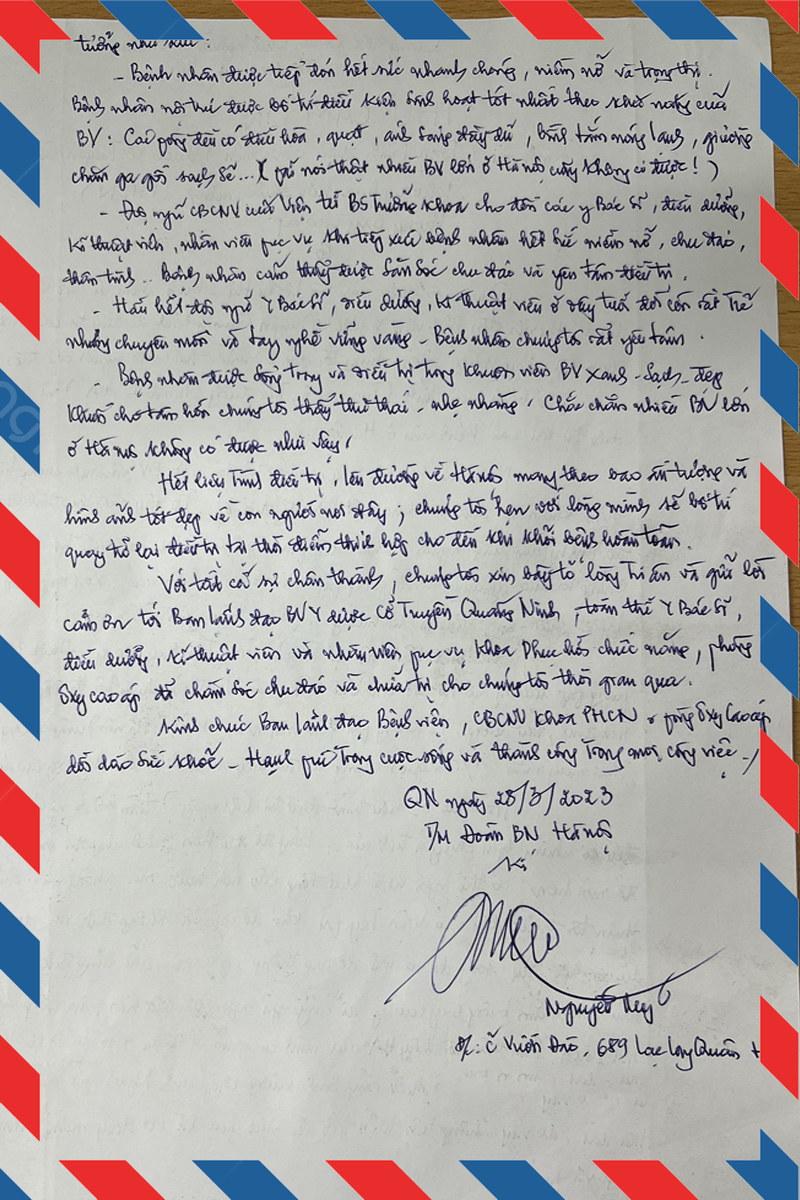 tưởng như sau :
- Bệnh nhân được tiếp đón hết sức nhanh chóng, niềm nở và trọng thị.
Bệnh nhân nội trú được bố trí điều kiện sinh hoạt tốt nhất theo khả năng của
BV : Các phòng đều có điều hòa, quạt, ánh sáng đầy đủ, bình tắm nóng lạnh, giường
chăn ga gối sạch sẽ... ( nói thật nhiều BV lớn ở Hà Nội cũng không có được ! )
- Đội ngũ CBCNV của Viện từ BS Trưởng khoa cho đến các y Bác sĩ, điều dưỡng,
kĩ thuật viên, nhân viên phục vụ khi tiếp xúc bệnh nhân hết sức niềm nở, chu đáo,
thân tình.. Bệnh nhân cảm thấy được săn sóc chu đáo và yên tâm điều trị.
- Hầu hết đội ngũ Y Bác sĩ, điều dưỡng, kĩ thuật viên ở đây tuổi đời còn rất trẻ
nhưng chuyên môn và tay nghề vững vàng - Bệnh nhân chúng tôi rất yên tâm.
- Bệnh nhân được sống trong và điều trị trong khuôn viên BV xanh - sạch - đẹp
khiến cho tâm hồn chúng tôi thấy thư thái - nhẹ nhàng, Chắc chắn nhiều BV lớn
ở Hà Nội không có được như vậy,
Hết liệu trình điều trị, lên đường về Hà Nội mang theo bao ấn tượng và
hình ảnh tốt đẹp về con người nơi đây ; chúng tôi hẹn với lòng mình sẽ bố trí
quay trở lại điều trị tại thời điểm thích hợp cho đến khi khỏi bệnh hoàn toàn.
Với tất cả sự chân thành, chúng tôi xin bày tỏ lòng tri ân và gửi lời
cảm ơn tới Ban lãnh đạo BV Y dược Cổ Truyền Quảng Ninh, toàn thể Y Bác sĩ,
điều dưỡng, kĩ thuật viên và nhân viên phục vụ khoa Phục hồi chức năng, phòng
Oxy cao áp đã chăm sóc chu đáo và chữa trị cho chúng tôi thời gian qua.
Kính chúc Ban lãnh đạo Bệnh viện, CBCNV khoa PHCN & phòng Oxy Cao áp
dồi dào sức khoẻ - Hạnh phúc trong cuộc sống và thành công trong mọi công việc -/
QN ngày 28/3/2023
T/M Đoàn BN Hà Nội
Nguyễn
Đ/c: Vườn Đào, 689 Lạc Long Quân